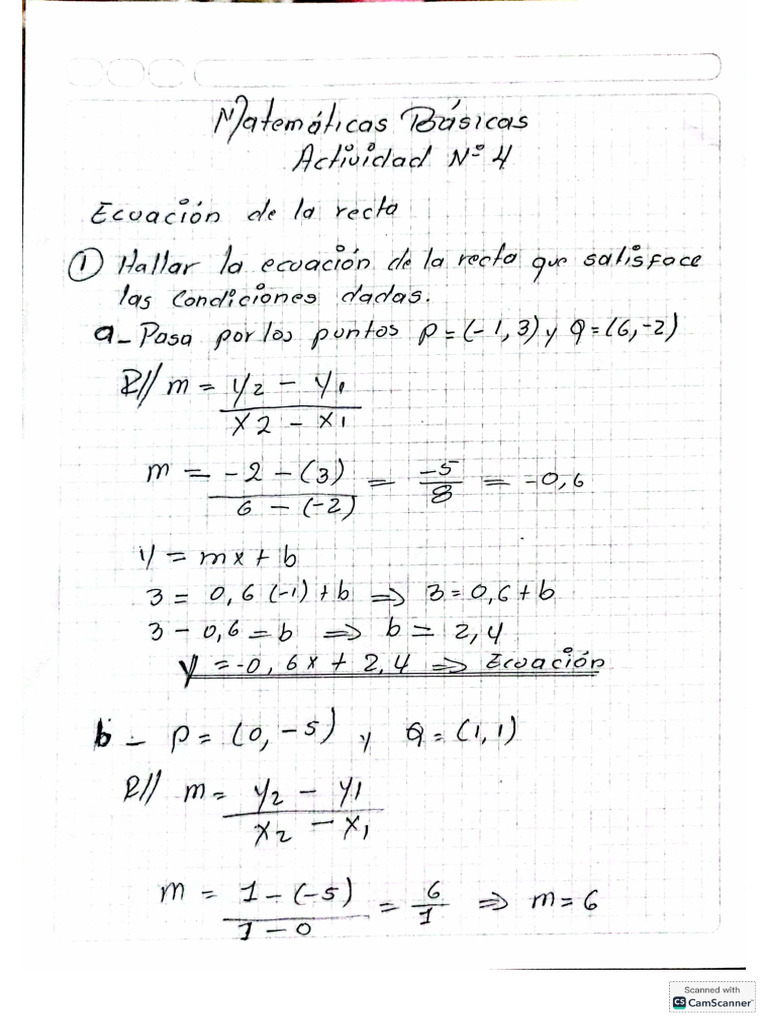 Matemáticas Básicas
Actividad N° 4
Ecuación de la recta
① Hallar la ecuación de la recta que satisface
las condiciones dadas.
a- Pasa por los puntos P=(-1,3) y Q=(6,-2)
R// m = y2 - y1 / x2 - x1
m = -2-(3) / 6-(-2) = -5/8 = -0,6
y = mx + b
3 = 0,6(-1)+b ⇒ 3=0,6+b
3-0,6=b ⇒ b=2,4
y=-0,6x+2,4 ⇒ Ecuación
b- P=(0,-5) y Q=(1,1)
R// m = y2 - y1 / x2 - x1
m = 1-(-5) / 1-0 = 6/1 ⇒ m=6
Scanned with
CS CamScanner